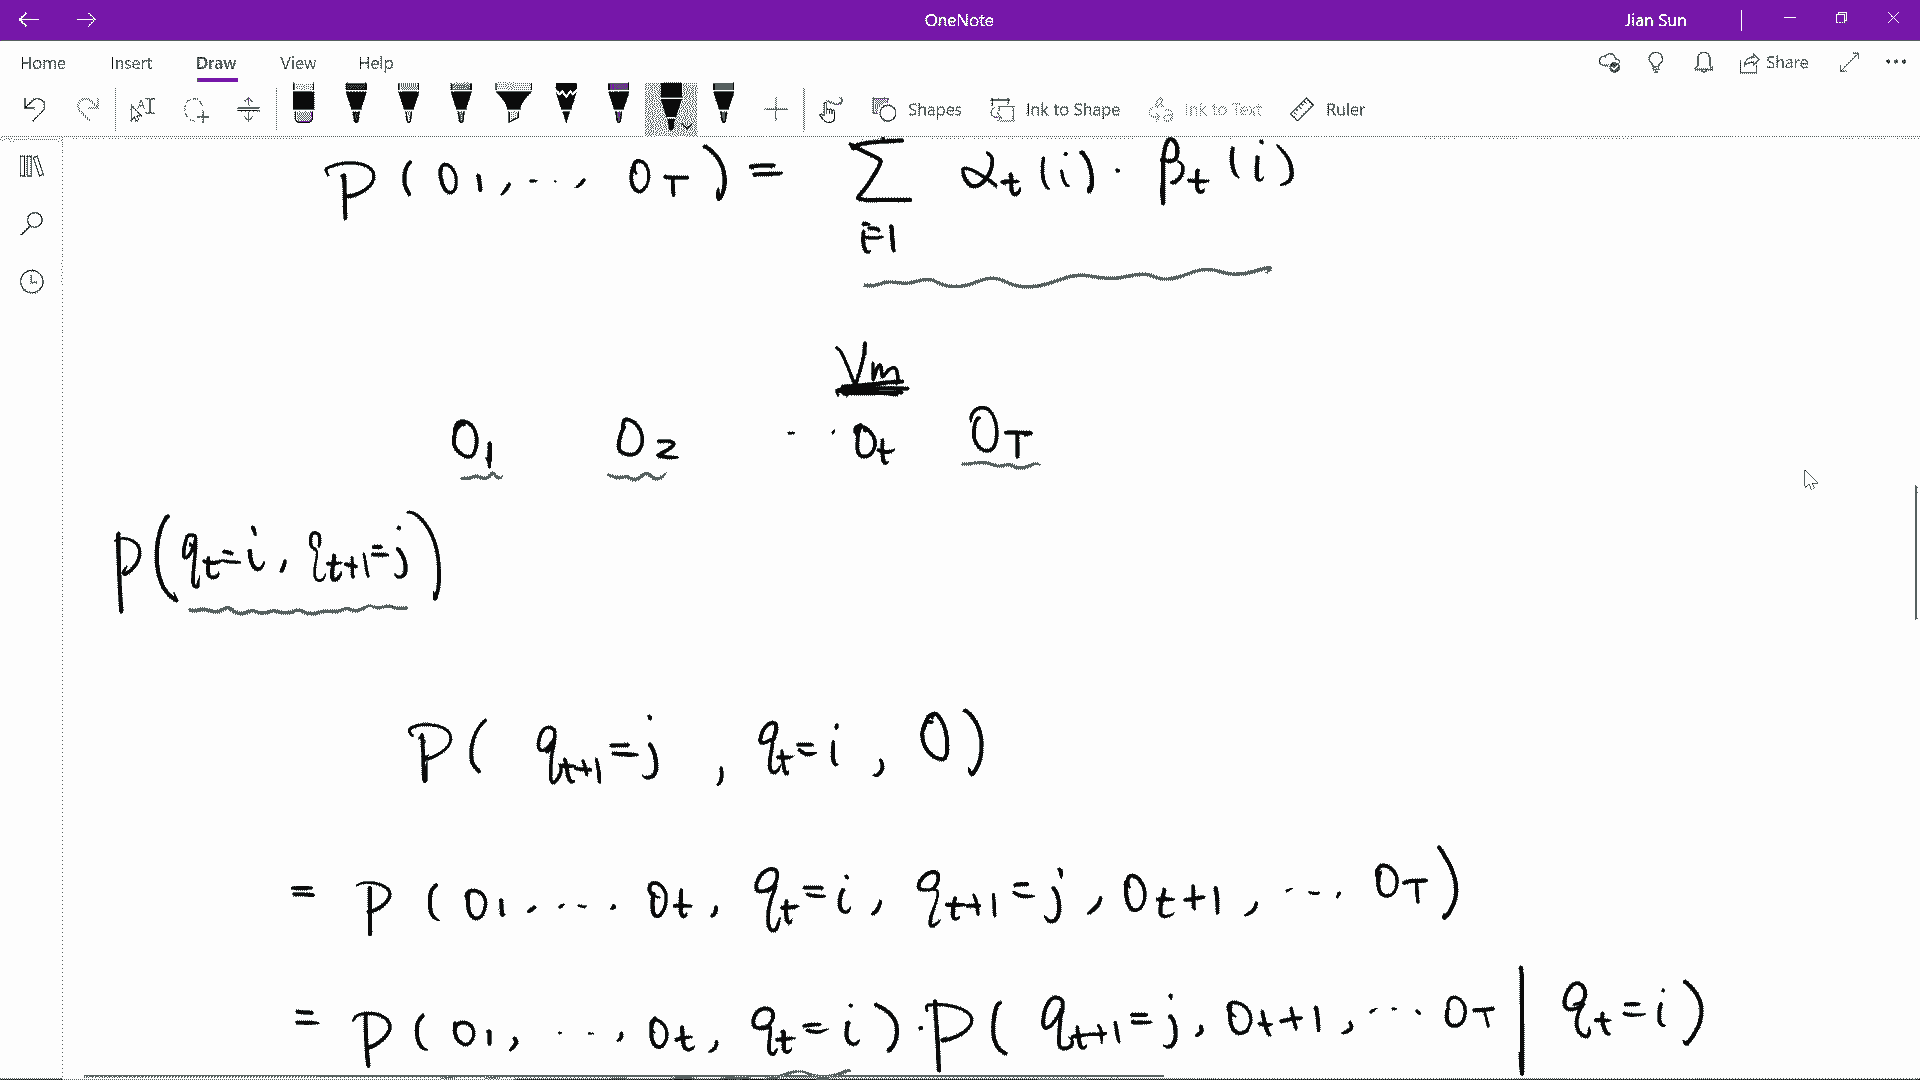 OneNote
Jian Sun
Home Insert Draw View Help
Share
Shapes Ink to Shape Ink to Text Ruler
P(O₁, ..., O_T) = ∑ α_t(i) · β_t(i)
i=1
Vm
O₁ O₂ ... O_t O_T
P(q_t=i, q_{t+1}=j)
P( q_{t+1}=j , q_t=i , O)
= P(O₁, ... O_t, q_t=i, q_{t+1}=j, O_{t+1}, ... O_T)
= P(O₁, ..., O_t, q_t=i) · P( q_{t+1}=j, O_{t+1}, ... O_T | q_t=i)